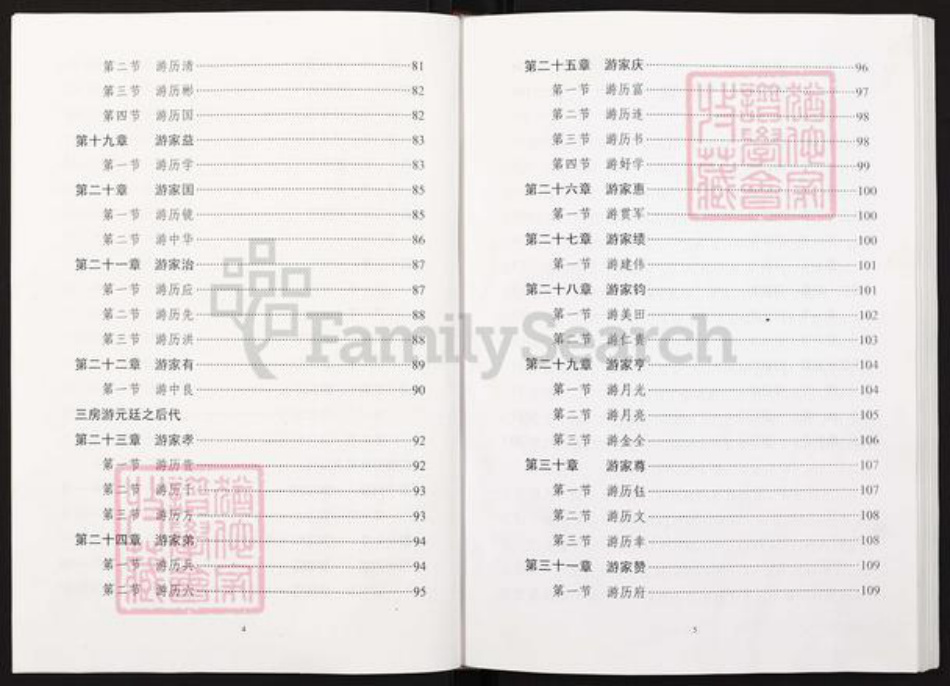 第二节 游历清 81
第三节 游历彬 82
第四节 游历国 82
第十九章 游家益 83
第一节 游历学 83
第二十章 游家国 85
第一节 游历镜 85
第二节 游中华 86
第二十一章 游家治 87
第一节 游历应 87
第二节 游历先 88
第三节 游历洪 88
第二十二章 游家有 89
第一节 游中良 90
三房游元廷之后代
第二十三章 游家孝 92
第一节 游历贵 92
第二节 游历千 93
第三节 游历方 93
第二十四章 游家弟 94
第一节 游历兵 94
第二节 游历六 95
4
第二十五章 游家庆 96
第一节 游历富 97
第二节 游历连 98
第三节 游历书 98
第四节 游好学 99
第二十六章 游家惠 100
第一节 游贯军 100
第二十七章 游家绩 100
第一节 游建伟 101
第二十八章 游家钧 101
第一节 游美田 102
第二节 游仁贵 103
第二十九章 游家亨 104
第一节 游月光 104
第二节 游月亮 105
第三节 游金全 106
第三十章 游家尊 107
第一节 游历钰 107
第二节 游历文 108
第三节 游历幸 108
第三十一章 游家赞 109
第一节 游历府 109
5
FamilySearch